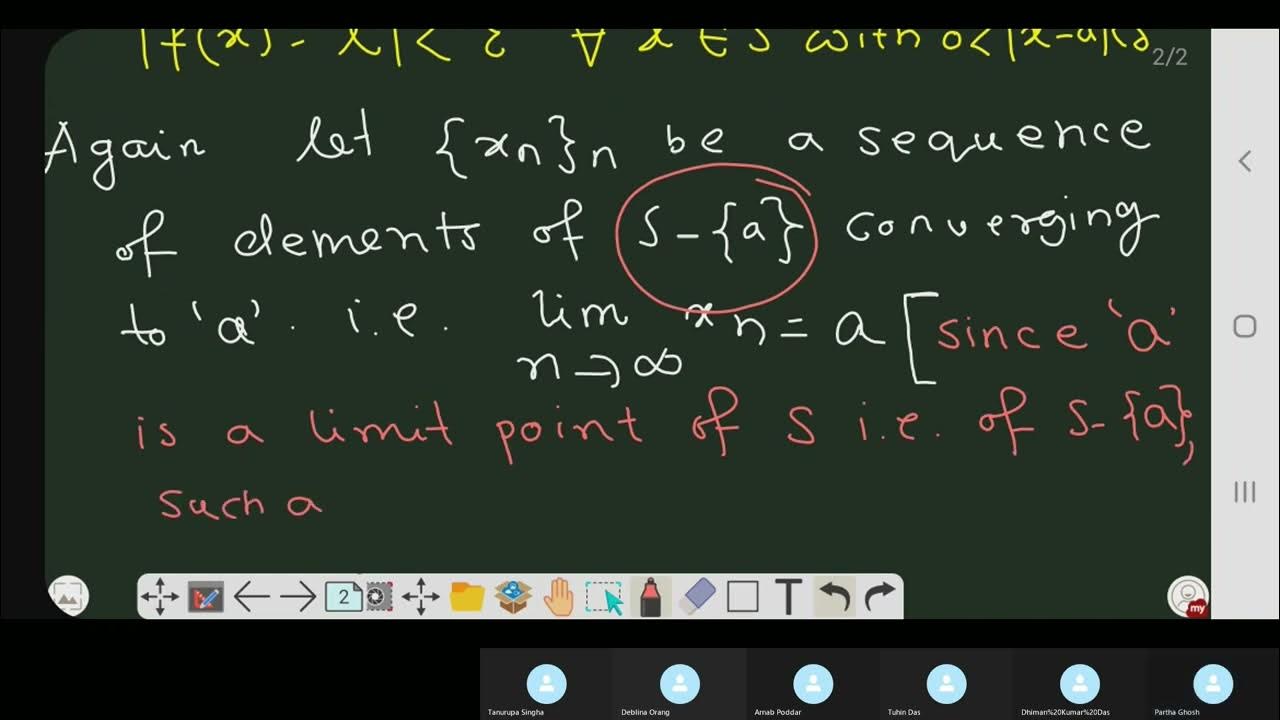 |f(x) - l| < ε ∀ x ∈ S with 0<|x-a|<δ
2/2
Again let {xn}n be a sequence
of elements of S - {a} converging
to 'a'. i.e. lim xn = a [since 'a'
n→∞
is a limit point of S i.e. of S-{a},
such a
2
T
my
Tanurupa Singha Deblina Orang Arnab Poddar Tuhin Das Dhiman%20Kumar%20Das Partha Ghosh